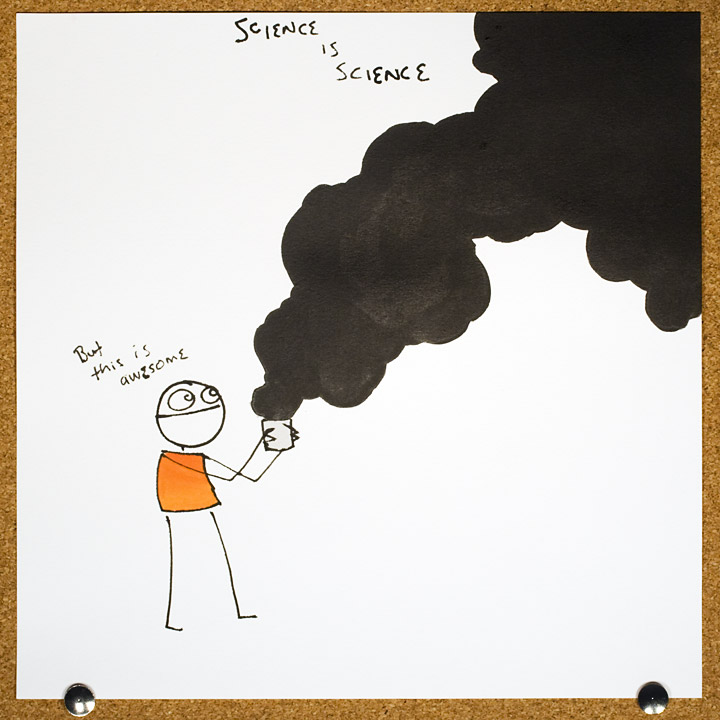 SCIENCE
is
SCIENCE
But
this is
awesome